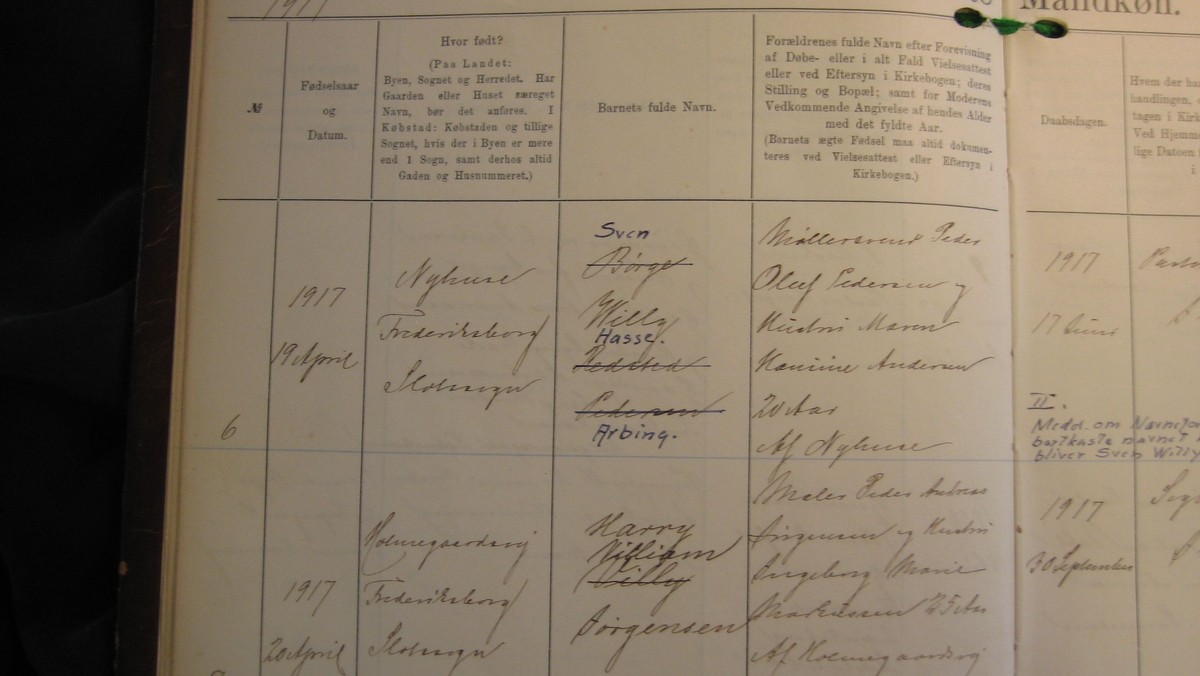 1917
Mandkøn.
№
Fødselsaar
og
Datum.
Hvor født?
(Paa Landet:
Byen, Sognet og Herredet. Har
Gaarden eller Huset særeget
Navn, bør det anføres. I
Købstad: Købstaden og tillige
Sognet, hvis der i Byen er mere
end 1 Sogn, samt derhos altid
Gaden og Husnummeret.)
Barnets fulde Navn.
Forældrenes fulde Navn efter Forevisning
af Døbe- eller i alt Fald Vielsesattest
eller ved Eftersyn i Kirkebogen; deres
Stilling og Bopæl; samt for Moderens
Vedkommende Angivelse af hendes Alder
med det fyldte Aar.
(Barnets ægte Fødsel maa altid dokumen-
teres ved Vielsesattest eller Eftersyn i
Kirkebogen.)
Daabsdagen.
Hvem der har
handlingen,
tagen i Kirk
Ved Hjemme
lige Datoen
i
6
1917
19 April
Nyhuse
Frederiksborg
Slotssogn
Sven
Børge
Willy
Hasse.
Redsted
Pedersen
Arbing.
Møllersvend Peder
Oluf Pedersen og
Hustru Maren
Andersen
20 Aar
Af Nyhuse
1917
17 Juni
II.
Medd. om Navnefor
bortkaste navnet
bliver Sven Willy
1917
20 April
Holmegaardsvej
Frederiksborg
Slotssogn
Harry
William
Willy
Jørgensen
Maler Peder Andreas
Jørgensen og Hustru
Ingeborg Marie
Markussen 25 Aar
Af Holmegaardsvej
1917
30 September